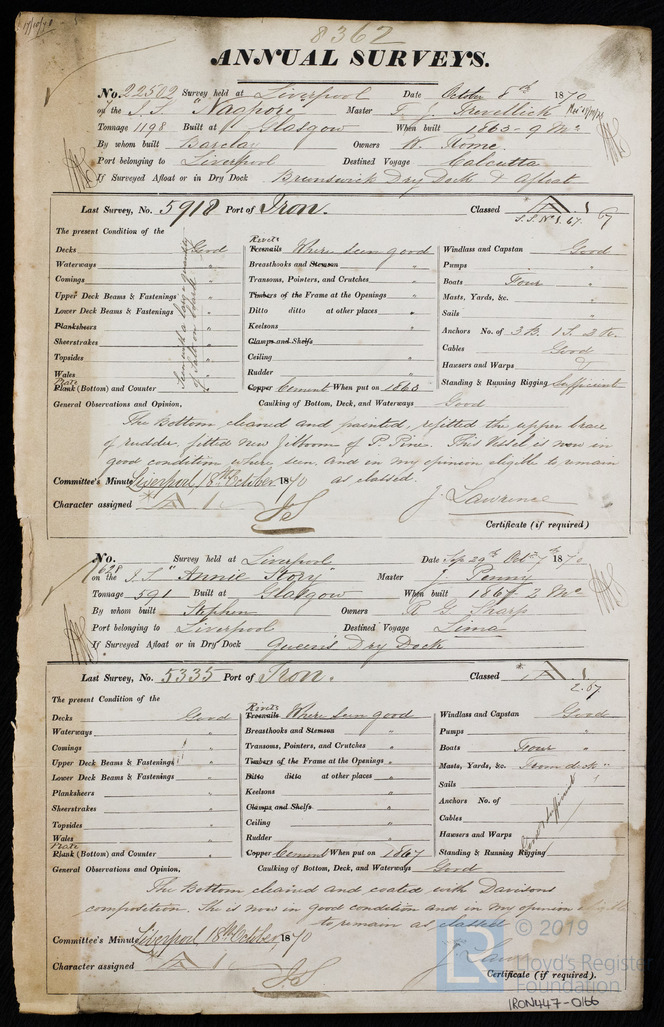 17/10/70
8362
ANNUAL SURVEYS.
No. 22502 Survey held at Liverpool Date October 8th 1870
on the I.S. "Nagpore" Master T. J. Trevellick
Tonnage 1198 Built at Glasgow When built 1863 - 9 Mo
By whom built Barclay Owners W Rome
Port belonging to Liverpool Destined Voyage Calcutta
If Surveyed Afloat or in Dry Dock Brunswick Dry Dock & Afloat
Last Survey, No. 5918 Port of Iron. Classed A 1
S.S. No 1. 67. 67
The present Condition of the
Decks Good
Waterways "
Comings "
Upper Deck Beams & Fastenings "
Lower Deck Beams & Fastenings "
Planksheers
Sheerstrakes "
Topsides "
Wales "
Plate
Plank (Bottom) and Counter "
Rivets
Treenails Where seen good
Breasthooks and Stemson "
Transoms, Pointers, and Crutches "
Timbers of the Frame at the Openings "
Ditto ditto at other places "
Keelsons "
Clamps and Shelfs
Ceiling "
Rudder "
Copper Cement When put on 1863
Caulking of Bottom, Deck, and Waterways Good
Windlass and Capstan Good
Pumps "
Boats Four "
Masts, Yards, &c. "
Sails "
Anchors No. of 3 B. 1 S. 2 K.
Cables Good
Hawsers and Warps
Standing & Running Rigging Sufficient
General Observations and Opinion,
The Bottom cleaned and painted, refitted the upper brace
of rudder, fitted new Jibboom of P. Pine. This Vessel is now in
good condition where seen. and in my opinion eligible to remain
as classed.
Committee's Minute Liverpool, 18th October 1870
J. Lawrence
Character assigned A 1
Certificate (if required)
No.
Survey held at Liverpool Date Sep 29th Oct 7th 1870
on the I.S. "Annie Story" Master J Penny
Tonnage 591 Built at Glasgow When built 1867 2 Mo
By whom built Stephen Owners R G Sharp
Port belonging to Liverpool Destined Voyage Lima
If Surveyed Afloat or in Dry Dock Queen's Dry Dock
Last Survey, No. 5335 Port of Iron. Classed A 1
2.67
The present Condition of the
Decks Good
Waterways "
Comings "
Upper Deck Beams & Fastenings "
Lower Deck Beams & Fastenings "
Planksheers "
Sheerstrakes "
Topsides "
Wales "
Plate
Plank (Bottom) and Counter "
Rivets
Treenails Where seen good
Breasthooks and Stemson "
Transoms, Pointers, and Crutches "
Timbers of the Frame at the Openings "
Ditto ditto at other places "
Keelsons "
Clamps and Shelfs
Ceiling "
Rudder "
Copper Cement When put on 1867
Caulking of Bottom, Deck, and Waterways Good
Windlass and Capstan Good
Pumps "
Boats Four "
Masts, Yards, &c. From deck "
Sails
Anchors No. of
Cables
Hawsers and Warps
Standing & Running Rigging
General Observations and Opinion,
The Bottom cleaned and coated with Davisons
composition. She is now in good condition and in my opinion
to remain as classed
Committee's Minute Liverpool, 18th October, 1870
Character assigned A 1
Certificate (if required).
© 2019
LR
Lloyd's Register
Foundation
IRON447-0166